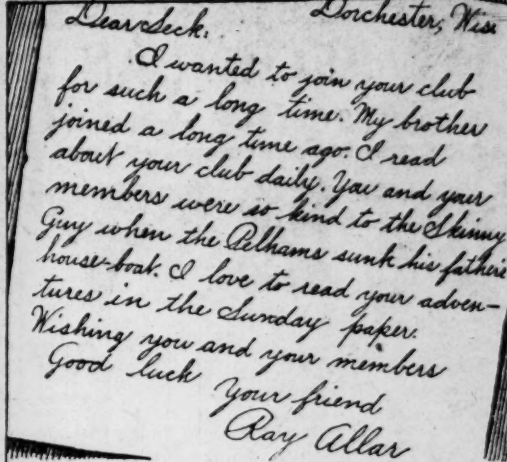 Dear Seck: Dorchester, Wis.
I wanted to join your club
for such a long time. My brother
joined a long time ago. I read
about your club daily. You and your
members were so kind to the Skinny
Guy when the Pelhams sunk his father's
house-boat. I love to read your adven-
tures in the Sunday paper.
Wishing you and your members
Good luck
Your friend
Ray Allar